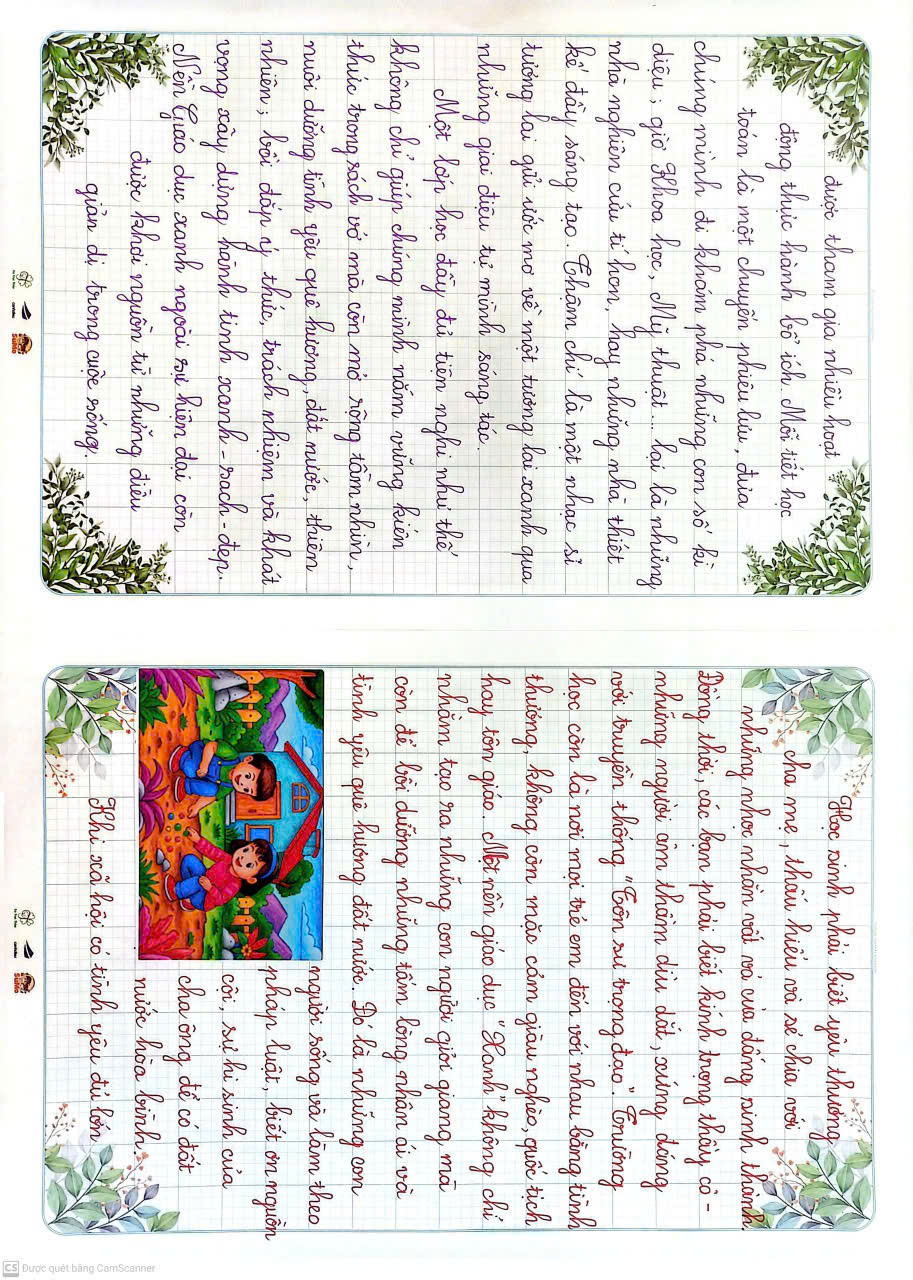 được tham gia nhiều hoạt
động thực hành bổ ích. Mỗi tiết học
toán là một chuyến phiêu lưu, đưa
chúng mình đi khám phá những con số kì
diệu; giờ Khoa học, Mỹ thuật... lại là những
nhà nghiên cứu tí hon, hay những nhà thiết
kế đầy sáng tạo. Thậm chí là một nhạc sĩ
tương lai gửi ước mơ về một tương lai xanh qua
những giai điệu tự mình sáng tác.
Một lớp học đầy đủ tiện nghi như thế
không chỉ giúp chúng mình nắm vững kiến
thức trong sách vở mà còn mở rộng tầm nhìn,
nuôi dưỡng tình yêu quê hương, đất nước, thiên
nhiên; bồi đắp ý thức, trách nhiệm và khát
vọng xây dựng hành tinh xanh - sạch - đẹp.
Nền Giáo dục xanh ngoài sự hiện đại còn
được khơi nguồn từ những điều
giản dị trong cuộc sống.
Học sinh phải biết yêu thương
cha mẹ, thấu hiểu và sẻ chia với
những nhọc nhằn vất vả của đấng sinh thành.
Đồng thời, các bạn phải biết kính trọng thầy cô -
những người âm thầm dìu dắt, xứng đáng
với truyền thống "Tôn sư trọng đạo". Trường
học còn là nơi mọi trẻ em đến với nhau bằng tình
thương, không còn mặc cảm giàu nghèo, quốc tịch
hay tôn giáo. Một nền giáo dục "Xanh" không chỉ
nhằm tạo ra những con người giỏi giang, mà
còn để bồi dưỡng những tấm lòng nhân ái và
tình yêu quê hương đất nước. Đó là những con
người sống và làm theo
pháp luật, biết ơn nguồn
cội, sự hi sinh của
cha ông để có đất
nước hòa bình.
Khi xã hội có tình yêu đủ lớn
CS Được quét bằng CamScanner